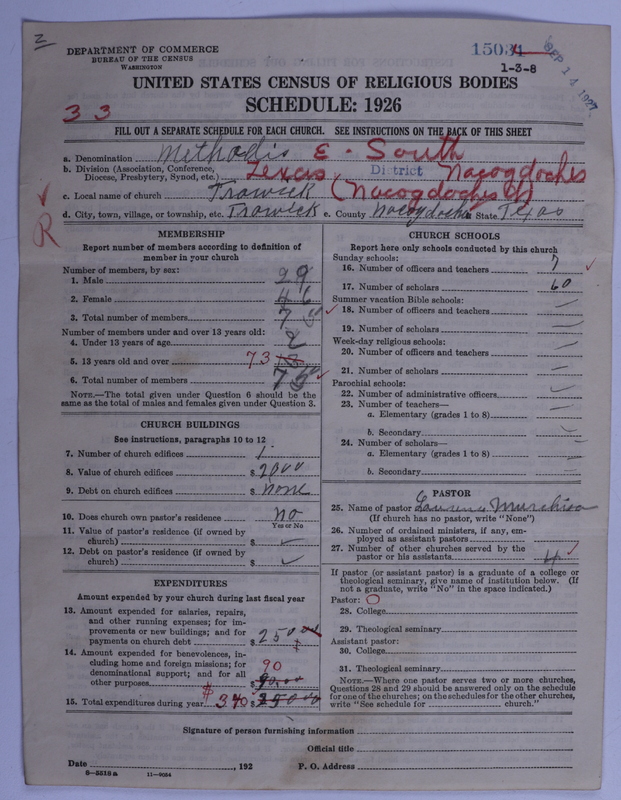 2
DEPARTMENT OF COMMERCE
BUREAU OF THE CENSUS
WASHINGTON
15031
1-3-8
SEP 14 1927
UNITED STATES CENSUS OF RELIGIOUS BODIES
SCHEDULE: 1926
33
FILL OUT A SEPARATE SCHEDULE FOR EACH CHURCH. SEE INSTRUCTIONS ON THE BACK OF THIS SHEET
a. Denomination Methodis E. South
b. Division (Association, Conference, Diocese, Presbytery, Synod, etc.) Texas District Nacogdoches
c. Local name of church Trawick (Nacogdoches
d. City, town, village, or township, etc. Trawick e. County Nacogdoches State Texas
R
MEMBERSHIP
Report number of members according to definition of
member in your church
Number of members, by sex:
1. Male 29
2. Female 46
3. Total number of members 75
Number of members under and over 13 years old:
4. Under 13 years of age 2
5. 13 years old and over 73
6. Total number of members 75
NOTE.—The total given under Question 6 should be the
same as the total of males and females given under Question 3.
CHURCH BUILDINGS
See instructions, paragraphs 10 to 12
7. Number of church edifices 1
8. Value of church edifices $ 2000
9. Debt on church edifices $ none
10. Does church own pastor's residence no
Yes or No
11. Value of pastor's residence (if owned by
church) $
12. Debt on pastor's residence (if owned by
church) $
EXPENDITURES
Amount expended by your church during last fiscal year
13. Amount expended for salaries, repairs,
and other running expenses; for im-
provements or new buildings; and for
payments on church debt $ 250
14. Amount expended for benevolences, in-
cluding home and foreign missions; for
denominational support; and for all
other purposes $ 90.00 90
15. Total expenditures during year $ 340 $ 250.00
CHURCH SCHOOLS
Report here only schools conducted by this church
Sunday schools:
16. Number of officers and teachers 7
17. Number of scholars 60
Summer vacation Bible schools:
18. Number of officers and teachers —
19. Number of scholars —
Week-day religious schools:
20. Number of officers and teachers —
21. Number of scholars —
Parochial schools:
22. Number of administrative officers
23. Number of teachers—
a. Elementary (grades 1 to 8) —
b. Secondary
24. Number of scholars—
a. Elementary (grades 1 to 8)
b. Secondary
PASTOR
25. Name of pastor Murchison
(If church has no pastor, write "None")
26. Number of ordained ministers, if any, em-
ployed as assistant pastors
27. Number of other churches served by the
pastor or his assistants 4
If pastor (or assistant pastor) is a graduate of a college or
theological seminary, give name of institution below. (If
not a graduate, write "No" in the space indicated.)
Pastor: O
28. College
29. Theological seminary
Assistant pastor:
30. College
31. Theological seminary
NOTE.—Where one pastor serves two or more churches,
Questions 28 and 29 should be answered only on the schedule
for one of the churches; on the schedules for the other churches,
write "See schedule for church."
Signature of person furnishing information
Official title
Date , 192 P. O. Address
8-5518a 11-9054